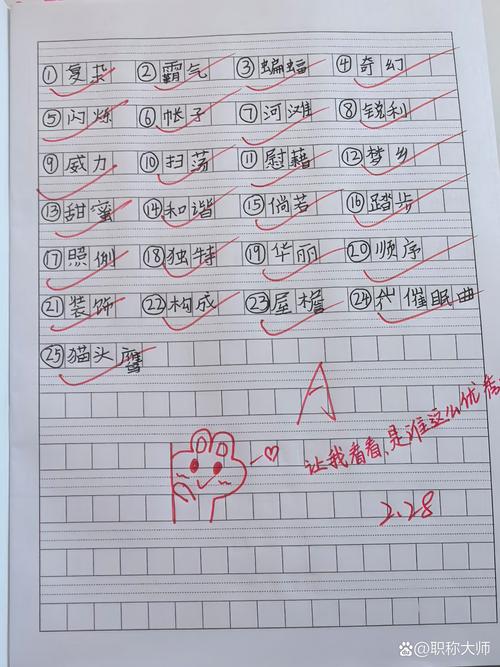 ①复杂 ②霸气 ③蝙蝠 ④奇幻
⑤闪烁 ⑥帐子 ⑦河滩 ⑧锐利
⑨威力 ⑩扫荡 ⑪慰藉 ⑫梦乡
⑬甜蜜 ⑭和谐 ⑮倘若 ⑯踏步
⑰照例 ⑱独特 ⑲华丽 ⑳顺序
㉑装饰 ㉒构成 ㉓屋檐 ㉔催眠曲
㉕猫头鹰
A
让我看看,是谁这么优秀
2.28
百家号/职称大师